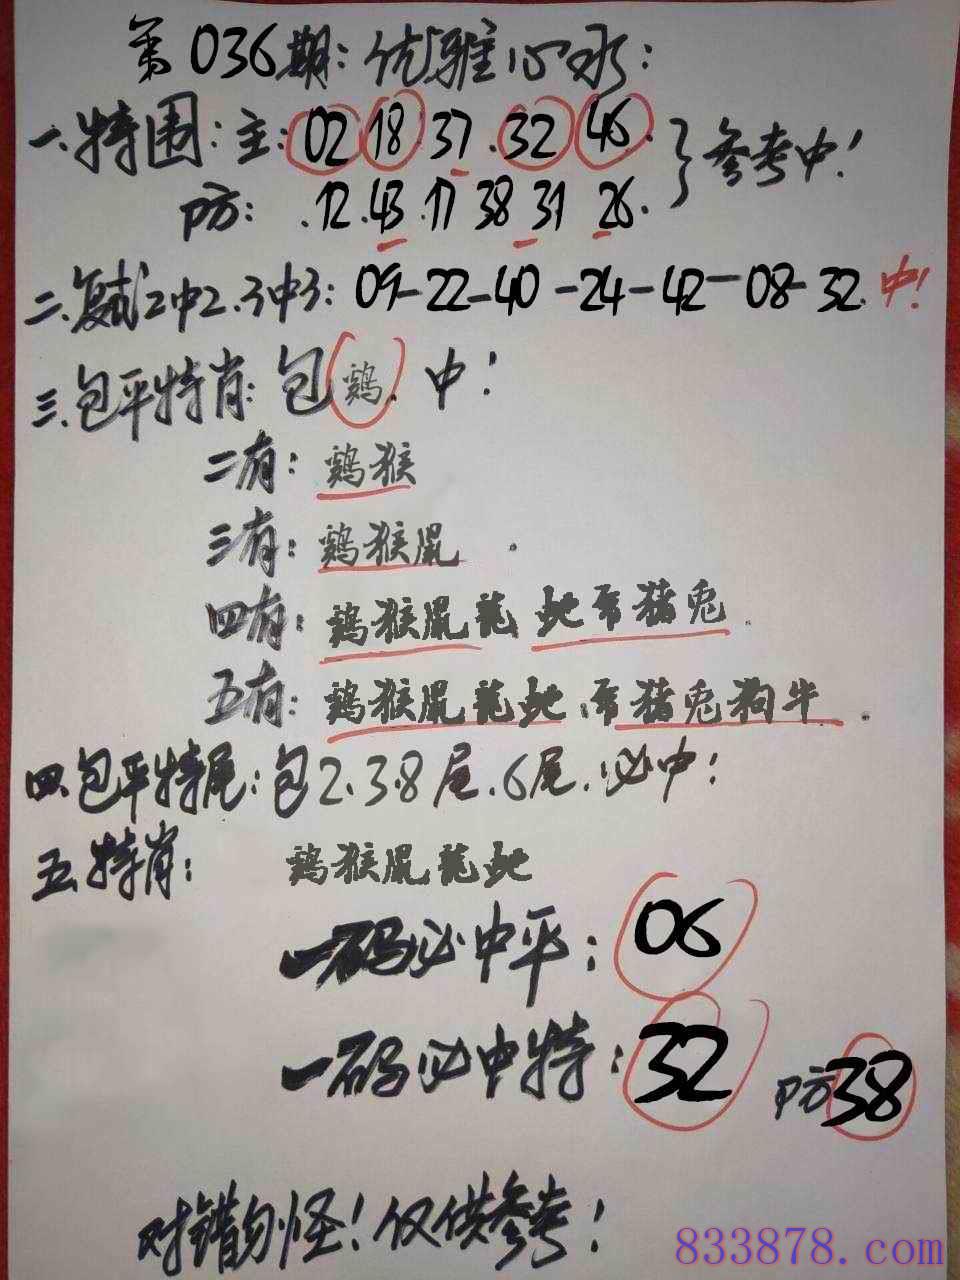 第036期:优雅心水:
一.特围:主:02 18 37.32 46.}参考中!
防:.12.43.17 38 31 26.
二.复式2中2.3中3:09-22-40-24-42-08-32.中!
三.包平特肖:包鷄.中!
二有:鷄猴
三有:鷄猴鼠.
四有:鷄猴鼠龍 蛇 猪兔.
五有:鷄猴鼠龍蛇. 猪兔狗牛.
四.包平特尾:包2.3.8尾.6尾.必中!
五.特肖:鷄猴鼠龍蛇
一码必中平:06
一码必中特:32 防38
对错勿怪!仅供参考!
833878.com